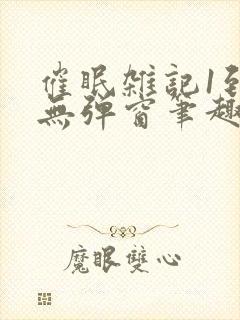 催眠雑記1至
無彈窗筆趣
魔眼雙心